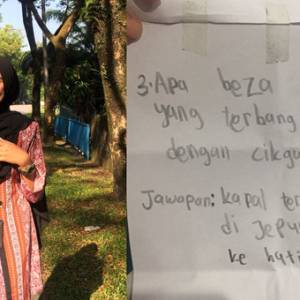 3. Apa beza
yang terbang
dengan
Jawapan: kapal
di
ke hati